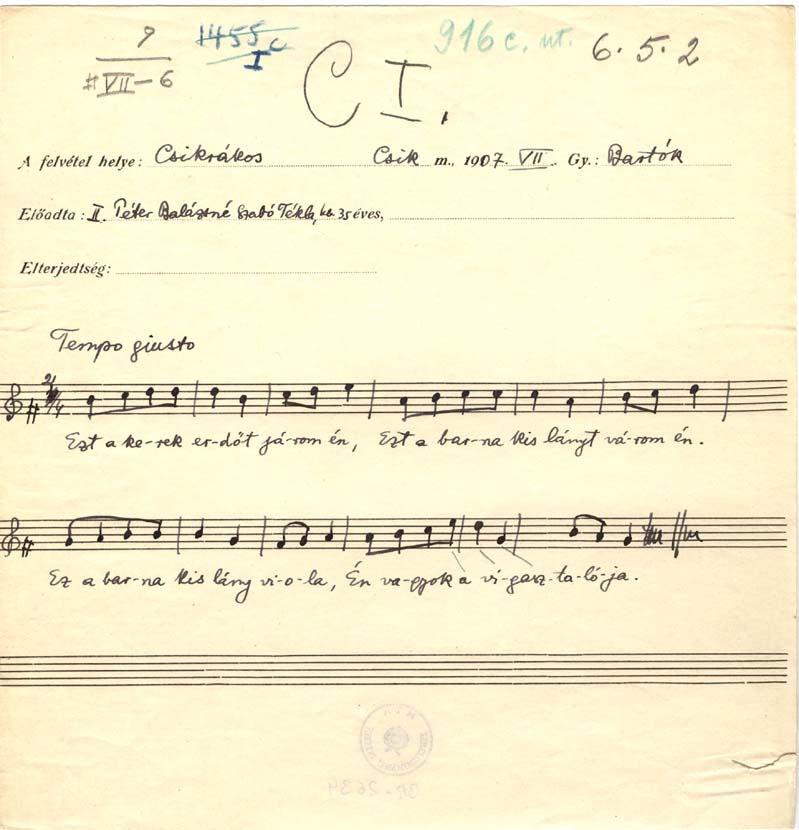 9
VII-6
1455 c
I
916 c. nt.
6. 5. 2
C I.
A felvétel helye: Csikrákos Csik m., 1907. VII. Gy.: Bartók
Előadta: II. Péter Balázsné Szabó Tékla, kb. 35 éves,
Elterjedtség:
Tempo giusto
2/4
Ezt a ke-rek er-dőt já-rom én, Ezt a bar-na kis lányt vá-rom én.
Ez a bar-na kis lány vi-o-la, Én va-gyok a vi-gasz-ta-ló-ja.